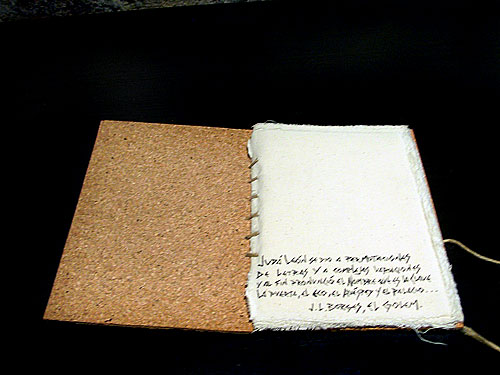 JUDÁ LEÓN SE DIO A PERMUTACIONES
DE LETRAS Y A COMPLEJAS VARIACIONES
Y AL FIN PRONUNCIÓ EL NOMBRE QUE ES LA CLAVE
LA PUERTA, EL ECO, EL HUÉSPED Y EL PALACIO...
J.L. BORGES, EL GOLEM.